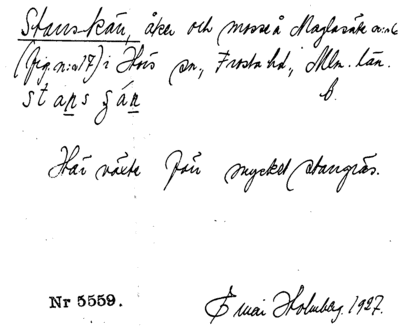 Stans-kän, åker och mosse å Maglasäte n:o 6
(fig. n:o 17) i Hörs sn, Frosta hd, Mlm. län.
stans gán b.
Här växte förr mycket stangräs.
Nr 5559. E mai Holmberg. 1927.